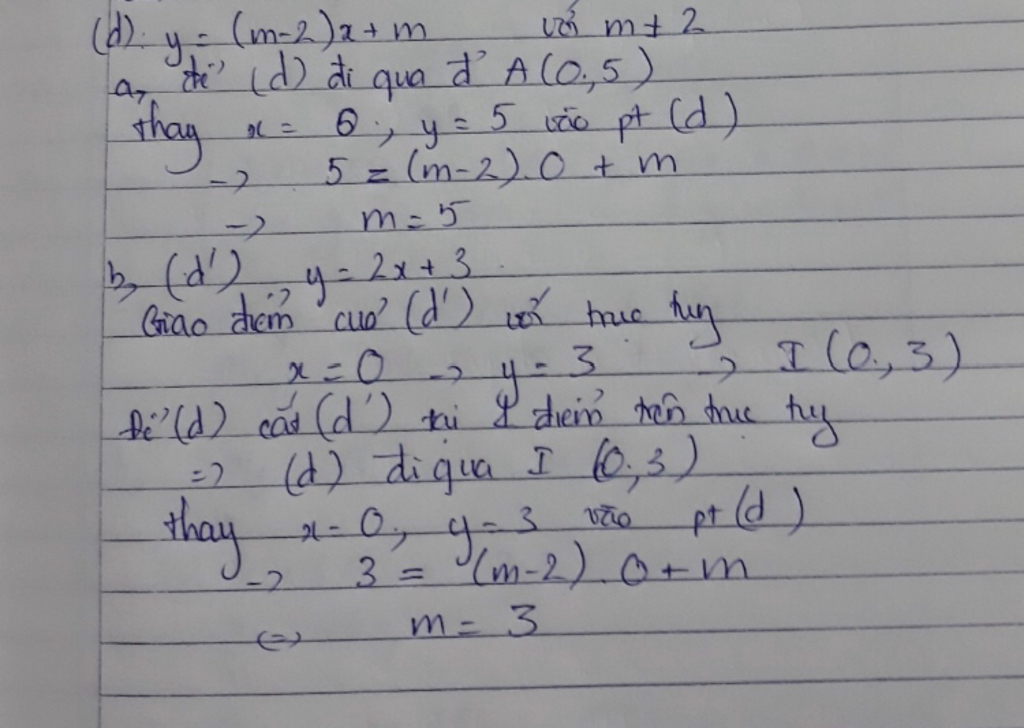 (d): y = (m-2)x + m với m ≠ 2
a, để (d) đi qua đ' A(0,5)
thay x = 0; y = 5 vào pt (d)
-> 5 = (m-2).0 + m
-> m = 5
b, (d') y = 2x + 3
Giao điểm của (d') với trục tung
x = 0 -> y = 3 -> I (0,3)
Để (d) cắt (d') tại 1 điểm trên trục tung
=> (d) đi qua I (0,3)
thay x = 0, y = 3 vào pt (d)
-> 3 = (m-2).0 + m
<=> m = 3